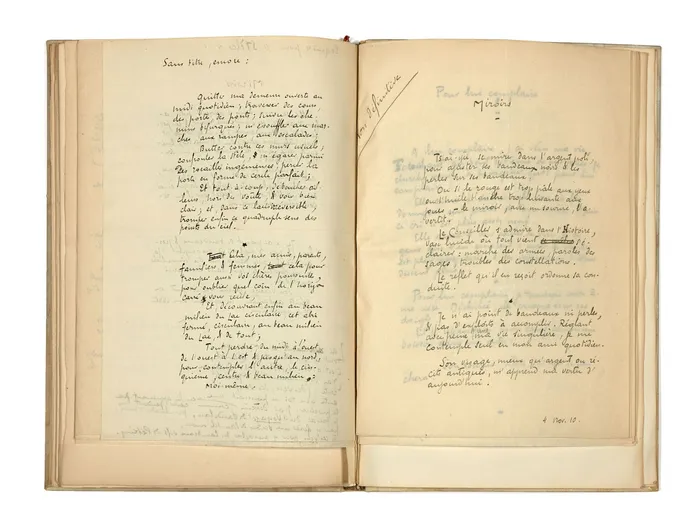 Sans titre, encore :
Quitter ma demeure ouverte au
midi quotidien ; traverser des cours,
des portes, des ponts ; suivre les che-
mins bifurqués ; m'essouffler aux mar-
ches, aux rampes, aux escalades ;
Butter contre les murs usuels ;
contourner la Stèle ; m'égarer parmi
des rocailles ingénieuses ; perdre la
porte en forme de cercle parfait ;
Et tout à coup, déboucher
clair ; et, dans ce
tromper enfin ce quadruple sens des
points du ciel.
Cela, mes amis, parents,
familiers & femmes, cela pour
tromper aussi vos chères poursuites,
pour oublier quel coin de l'horizon
carré vous recèle.
Et, découvrant enfin au beau
milieu du lac circulaire cet abri
fermé, circulaire, au beau milieu
du lac, & de tout,
Tout perdre, du midi à l'ouest
de l'ouest à l'est & jusqu'au nord,
pour contempler l'autre, le cin-
quième, centre & beau milieu,
Moi-même.
non définitive
Miroirs
Tsai-yu se mire dans l'argent poli
pour ajuster ses bandeaux noirs & les
perles sur ses bandeaux.
Ou si le rouge est trop pâle aux yeux
ou l'huile blanche trop luisante aux
joues, - le miroir, avec un sourire, l'a-
vertit.
Le Conseiller s'admire dans l'Histoire,
vase lucide où tout vient s'é-
clairer : marche des armées, paroles des
sages, troubles des constellations.
Le reflet qu'il en reçoit ordonne sa con-
duite.
Je n'ai point de bandeaux ni perles,
& pas d'exploits à accomplir. Réglant
ma vie singulière, je me
contemple seul en mon ami quotidien.
Son visage, mieux qu'argent ou ré-
cits antiques, m'apprend ma vertu d'
aujourd'hui.
4 Nov. 10.